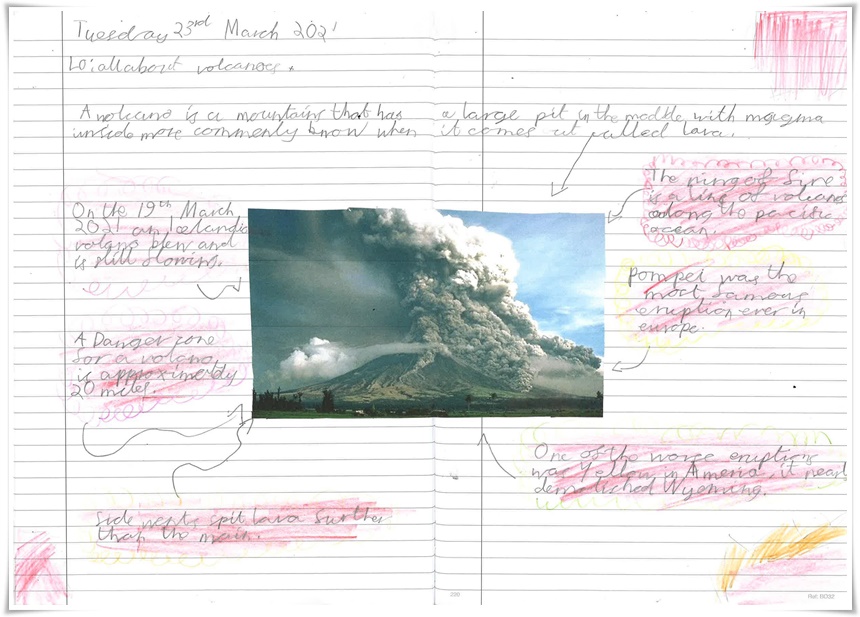 Tuesday 23rd March 2021
Lo: all about volcanoes.
A volcano is a mountains that has a large pit in the meddle with magma
inside more commenly know when it comes ut called lava.
On the 19th March
2021 an icelandic
volano blew and
is still flowing.
A Danger zone
for a volano,
is approximentdy
20 miles.
Side vents spit lava further
than the main.
The ring of fire
is a line of volcanos
along the pacific
ocean.
Pompei was the
most famous
eruption ever in
europe.
One of the worse eruptions
was Yellow in Ameria, it nearl
demolished Wyoming.
200
Ref: BO32